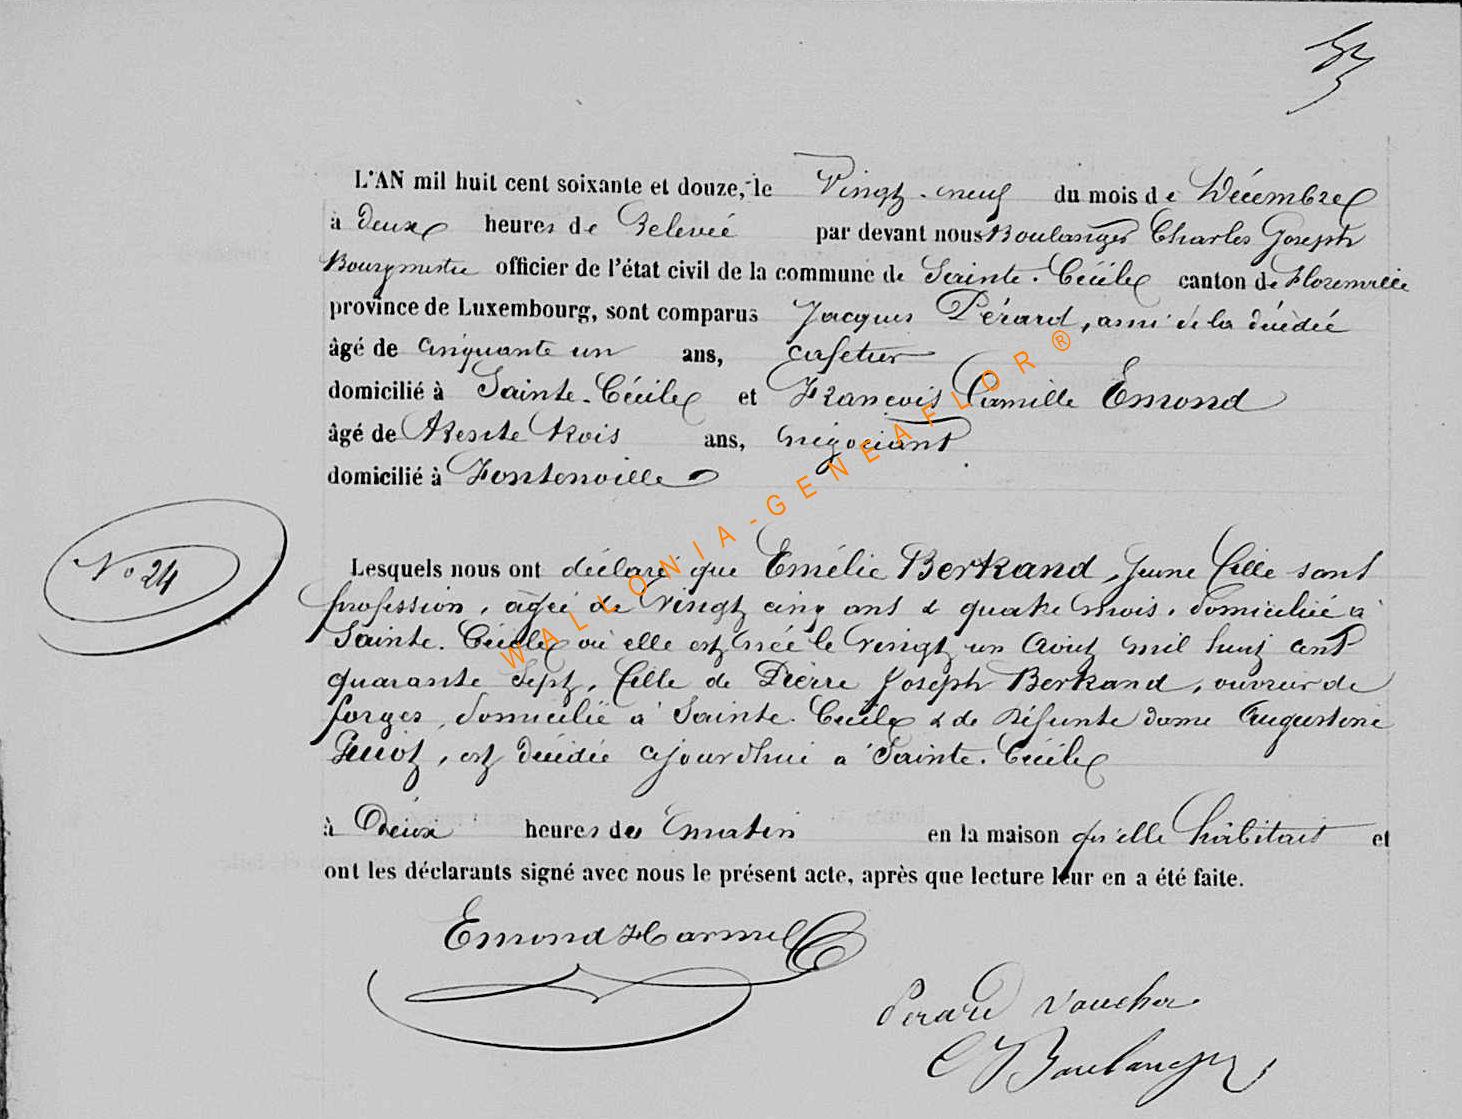 L'AN mil huit cent soixante et douze, le Vingt-neuf du mois de Décembre
à deux heures de Relevée par devant nous Boulanger Charles Joseph
Bourgmestre officier de l'état civil de la commune de Sainte-Cécile canton de Florenville
province de Luxembourg, sont comparus Jacques Pérard, ami de la décédée
âgé de cinquante un ans, cafetier
domicilié à Sainte-Cécile et François Camille Emond
âgé de trente trois ans, négociant
domicilié à Fontenoille
No 24
Lesquels nous ont déclaré que Emélie Bertrand, jeune fille sans
profession, âgée de vingt cinq ans & quatre mois, domiciliée à
Sainte-Cécile où elle est née le vingt un Août mil huit cent
quarante sept, fille de Pierre Joseph Bertrand, ouvrier de
forges, domicilié à Sainte-Cécile & de défunte dame Augustine
est décédée cejourd'hui à Sainte-Cécile
à Deux heures du matin en la maison qu'elle habitait et
ont les déclarants signé avec nous le présent acte, après que lecture leur en a été faite.
Emond Harmel
Perard Vaucher
C J Boulanger
WALLONIA-GENEAFLOR ®